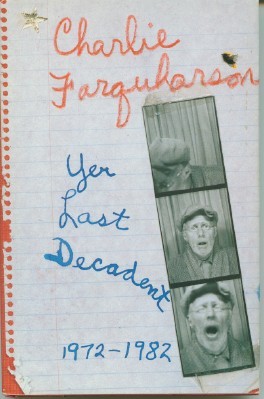 Charlie
Farquharson
Yer
Last
Decadent
1972-1982